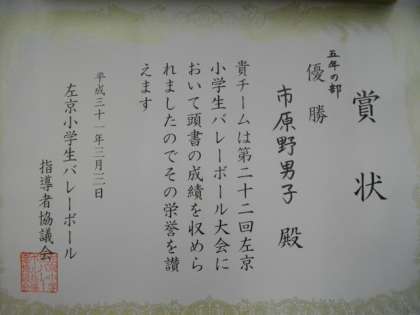 賞状
五年の部
優勝
市原野男子 殿
貴チームは第二十二回左京
小学生バレーボール大会に
おいて頭書の成績を収めら
れましたのでその栄誉を讃
えます
平成三十一年三月三日
左京小学生バレーボール
指導者協議会